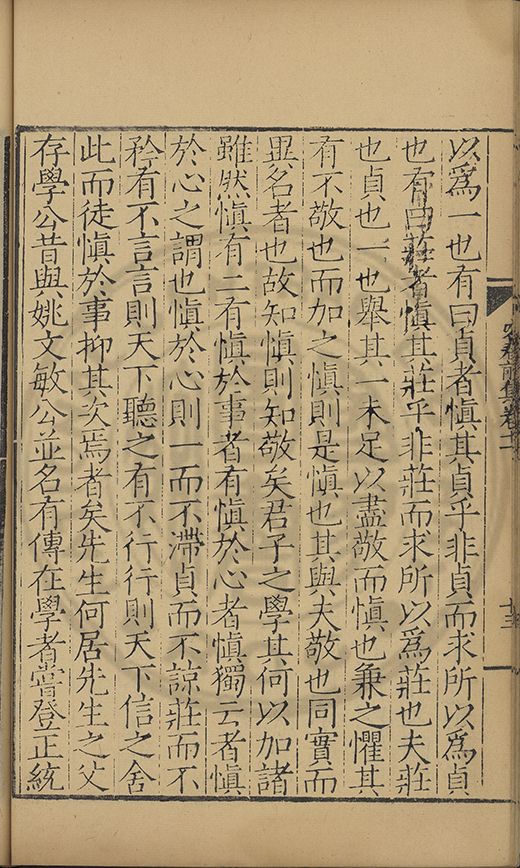 以爲一也有曰貞者愼其貞乎非貞而求所以爲貞
也有曰莊者愼其莊乎非莊而求所以爲莊也夫莊
也貞也一也舉其一未足以盡敬而愼也兼之懼其
有不敬也而加之愼則是愼也其與夫敬也同實而
異名者也故知愼則知敬矣君子之學其何以加諸
雖然愼有二有愼於事者有愼於心者愼獨云者愼
於心之謂也愼於心則一而不滯貞而不諒莊而不
矜有不言言則天下聽之有不行行則天下信之舍
此而徒愼於事抑其次焉者矣先生何居先生之父
存學公昔與姚文敏公並名有傳在學者嘗登正統
前集卷十